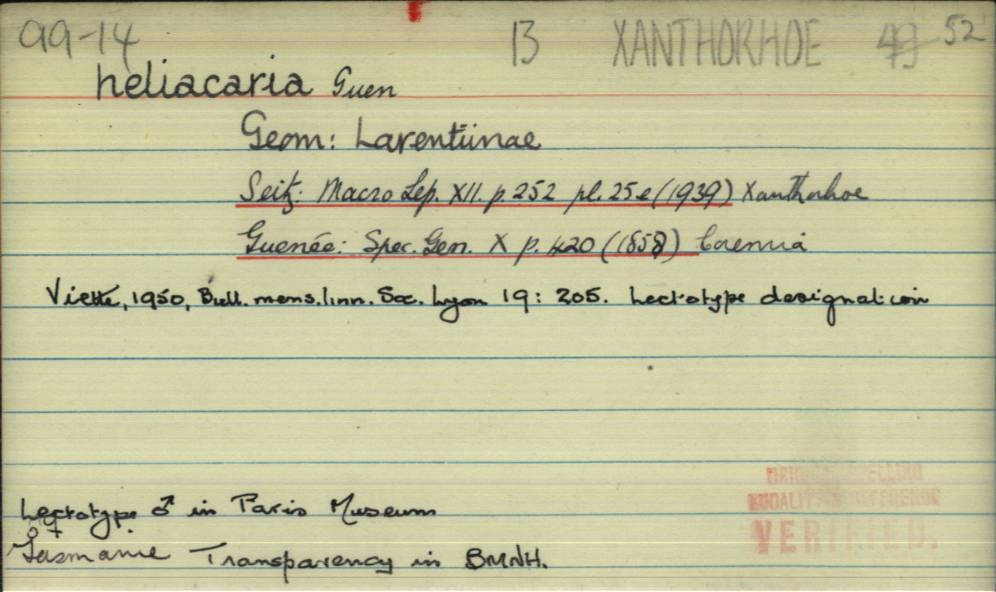 99-14 13 XANTHORHOE 49 52
heliacaria Guen
Geom: Larentiinae
Seitz: Macro Lep. XII. p. 252 pl. 25e (1939) Xanthorhoe
Guenée: Spec. Gen. X p. 420 (1858) Coremia
Viette, 1950, Bull. mens. linn. Soc. Lyon 19: 205. Lectotype designation
ORIGINAL SPELLING
LOCALITY & REFERENCE
VERIFIED.
Lectotype ♂ in Paris Museum
Tasmanie Transparency in BMNH.